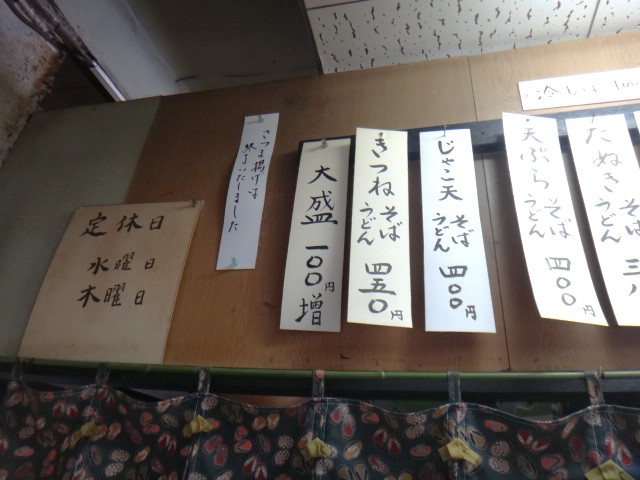 定休日
水曜日
木曜日
さつま揚げは
終了いたしました
大盛 一〇〇円増
きつね そば うどん 四五〇円
じゃこ天 そば うどん 四〇〇円
天ぷら そば うどん 四〇〇円
たぬき そば うどん 三